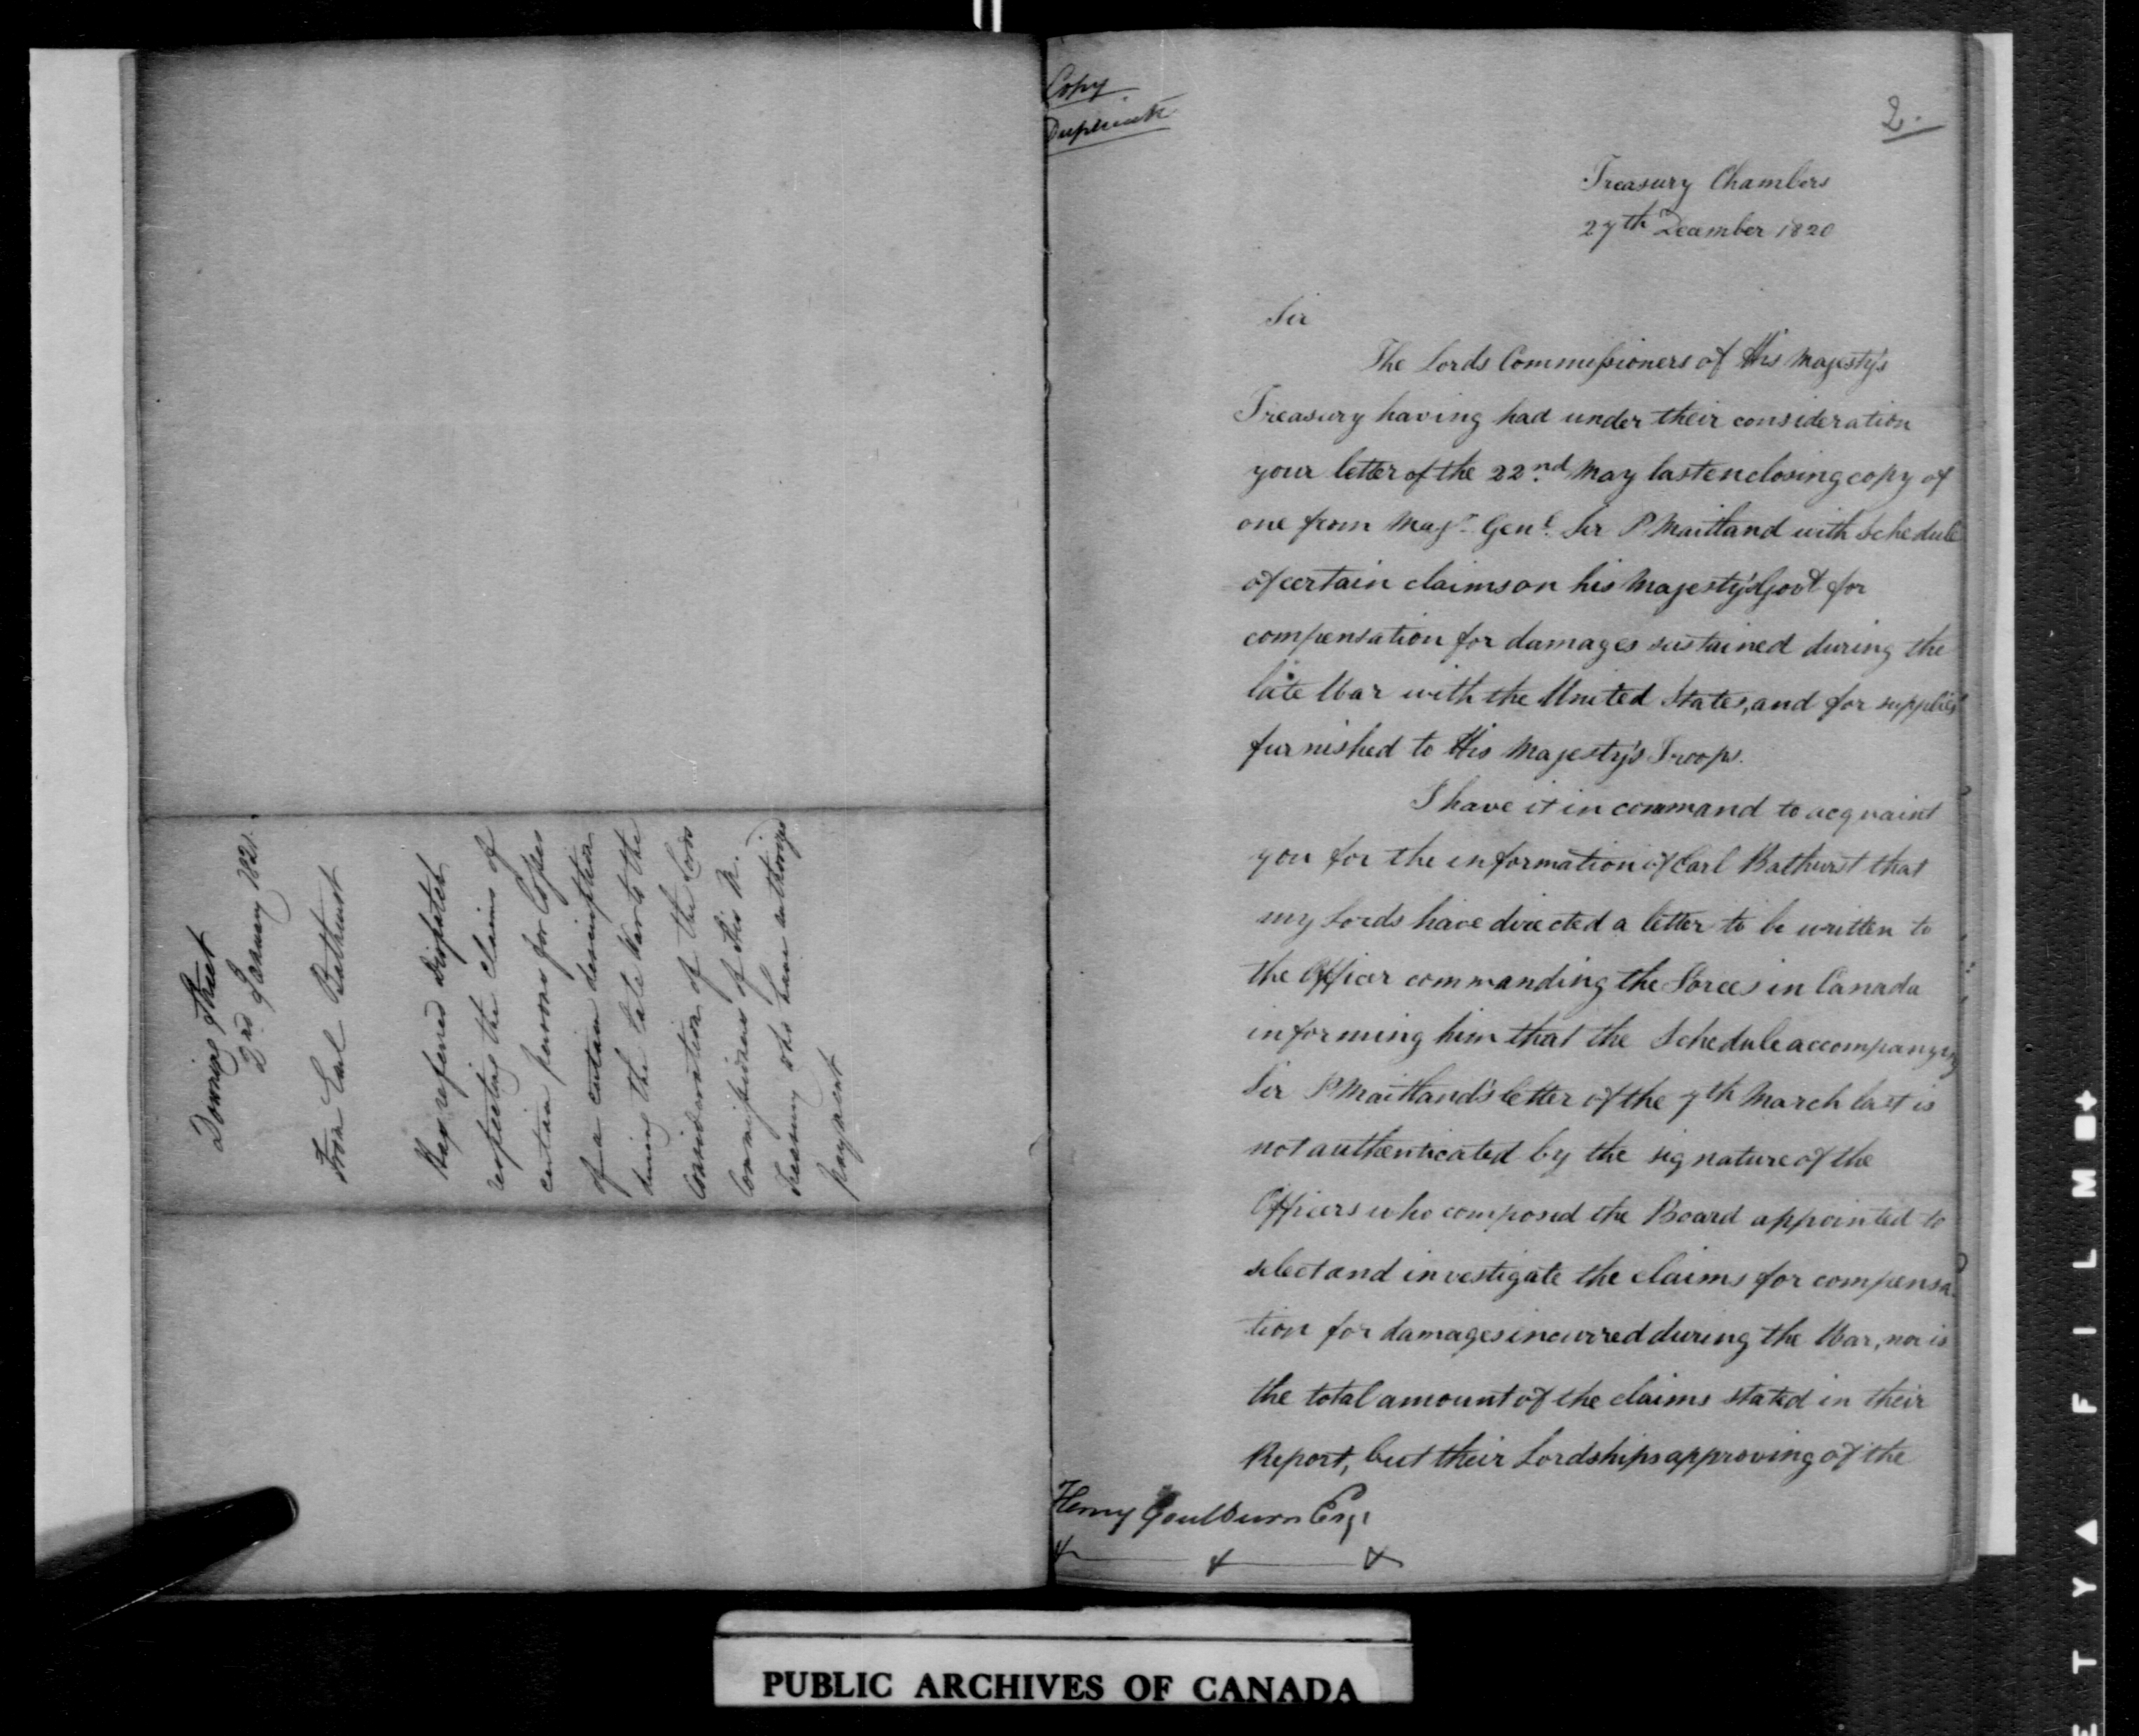 Downing Street
2nd January 1821.
From Earl Bathurst
Has referred dispatch
respecting the Claims of
certain persons for Losses
of a certain description
during the late War to the
Consideration of the Lords
Commissioners of His M.
Treasury who have authorized
payment
Copy.
Duplicate
2.
Treasury Chambers
27th December 1820
Sir
The Lords Commissioners of His Majesty's
Treasury having had under their consideration
your letter of the 22nd May last enclosing copy of
one from Majr Genl. Sir P Maitland with Schedule
of certain claims on his Majesty's Govt for
compensation for damages sustained during the
late War with the United States, and for supplies
furnished to His Majesty's Troops.
I have it in command to acquaint
you for the information of Earl Bathurst that
my Lords have directed a letter to be written to
the Officer commanding the Forces in Canada
informing him that the Schedule accompanying
Sir P Maitland's letter of the 7th March last is
not authenticated by the signature of the
Officers who composed the Board appointed to
select and investigate the claims for compensa
tion for damages incurred during the War, nor is
the total amount of the claims stated in their
Report, but their Lordships approving of the
Henry Goulburn Esqr
PUBLIC ARCHIVES OF CANADA
E T Y ▲ F I L M